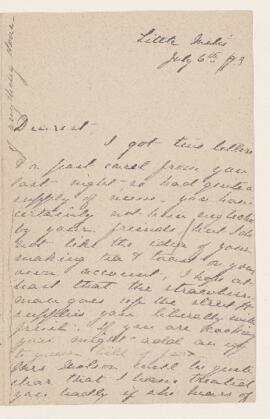 Little Metis
July 6th /93
Dearest -
I got two letters
& a post card from you
last night - so had quite a
supply of news. You have
certainly not been neglected
by your friends, but I do
not like the idea of your
making tea & toast on your
own account. I hope at
least that the strawberry
man goes up the street &
supplies you liberally with
fresh. If you are
you might add an egg
to your bill of fare
Mrs will be quite
clear that I have treated
you badly if she hears of